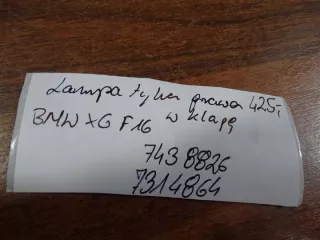 Lampa tylna prawa 425,-
BMW X6 F16 w klapę
7438826
7314864